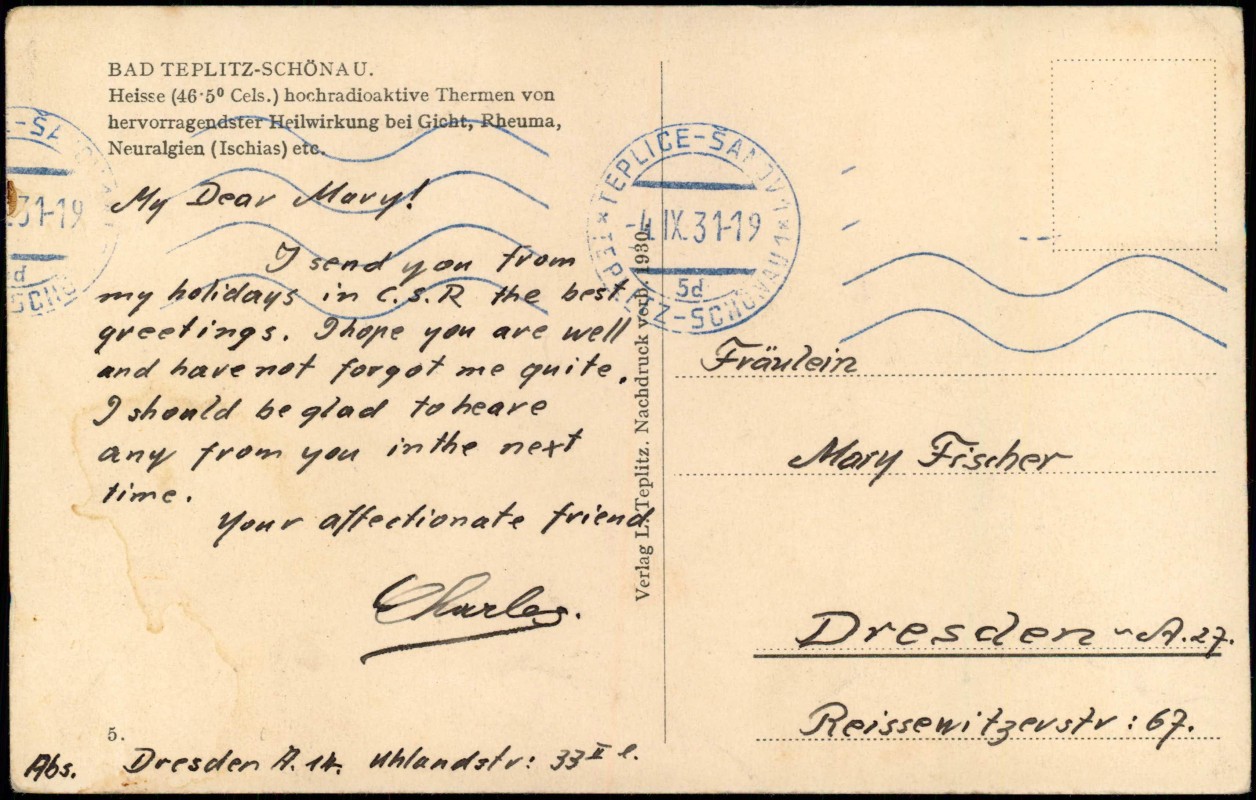 BAD TEPLITZ-SCHÖNAU.
Heisse (46·5⁰ Cels.) hochradioaktive Thermen von
hervorragendster Heilwirkung bei Gicht, Rheuma,
Neuralgien (Ischias) etc.
My Dear Mary!
I send you from
my holidays in C.S.R the best
greetings. I hope you are well
and have not forgot me quite.
I should be glad to heare
any from you in the next
time.
Your affectionate friend
Charles.
5.
Abs. Dresden A. 14. Uhlandstr: 33 II l.
Verlag L. Teplitz. Nachdruck verb. 1930.
TEPLICE-ŠANOV 1
-4.IX.31-19
5d
TEPLITZ-SCHÖNAU 1
.31-19
Fräulein
Mary Fischer
Dresden - A.27.
Reissewitzerstr: 67.